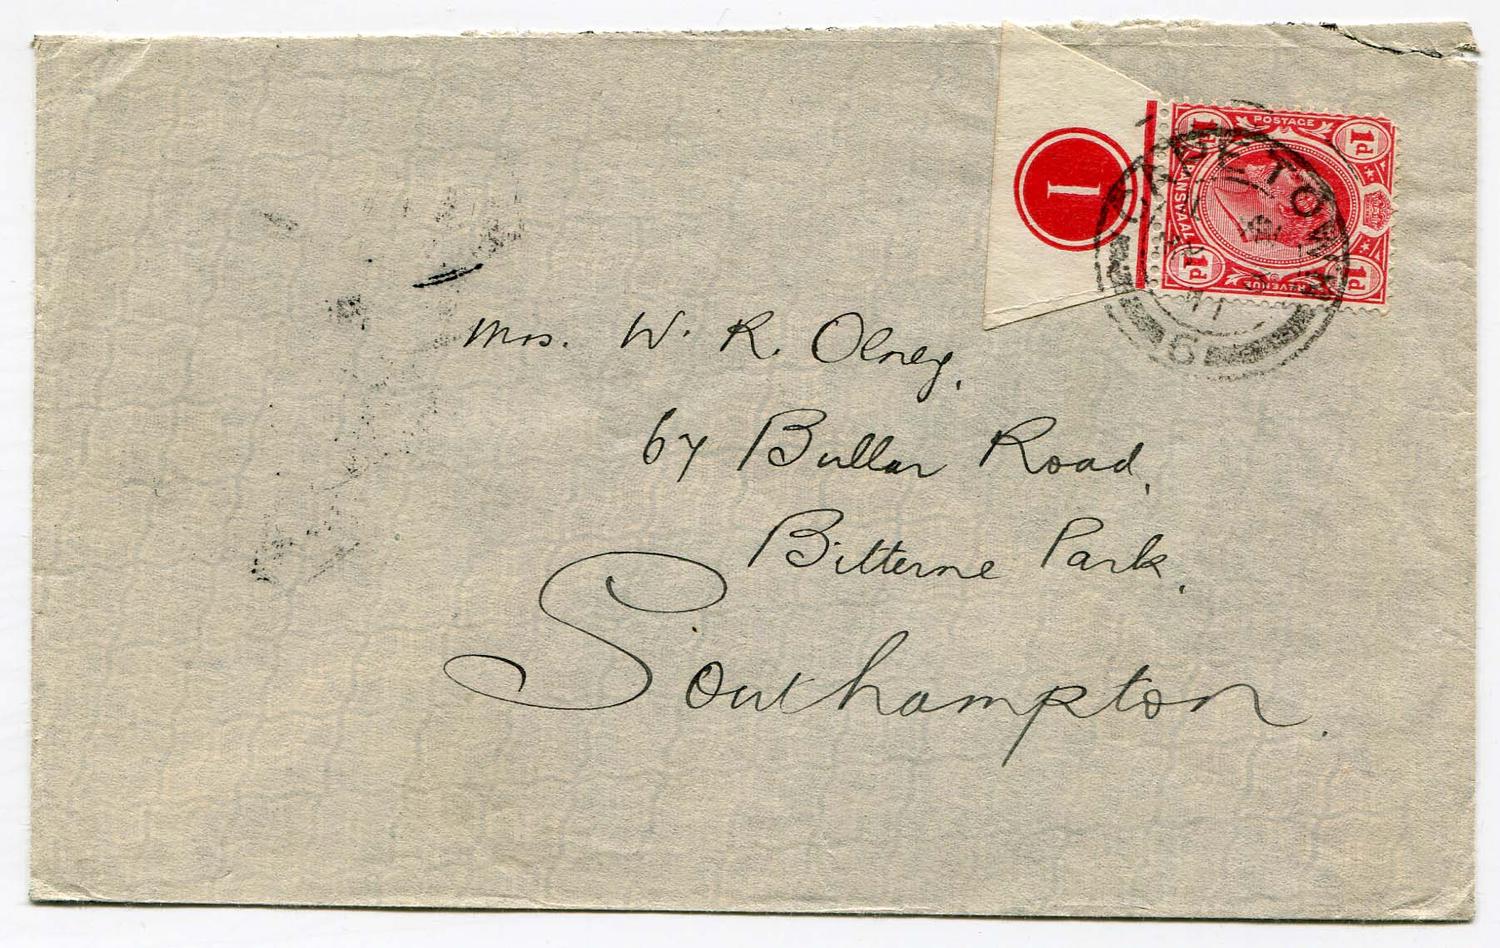 1
POSTAGE
1d 1d
TRANSVAAL
1d 1d
REVENUE
CAPE TOWN
11
6
Mrs. W. R. Olney,
67 Bullar Road,
Bitterne Park,
Southampton.